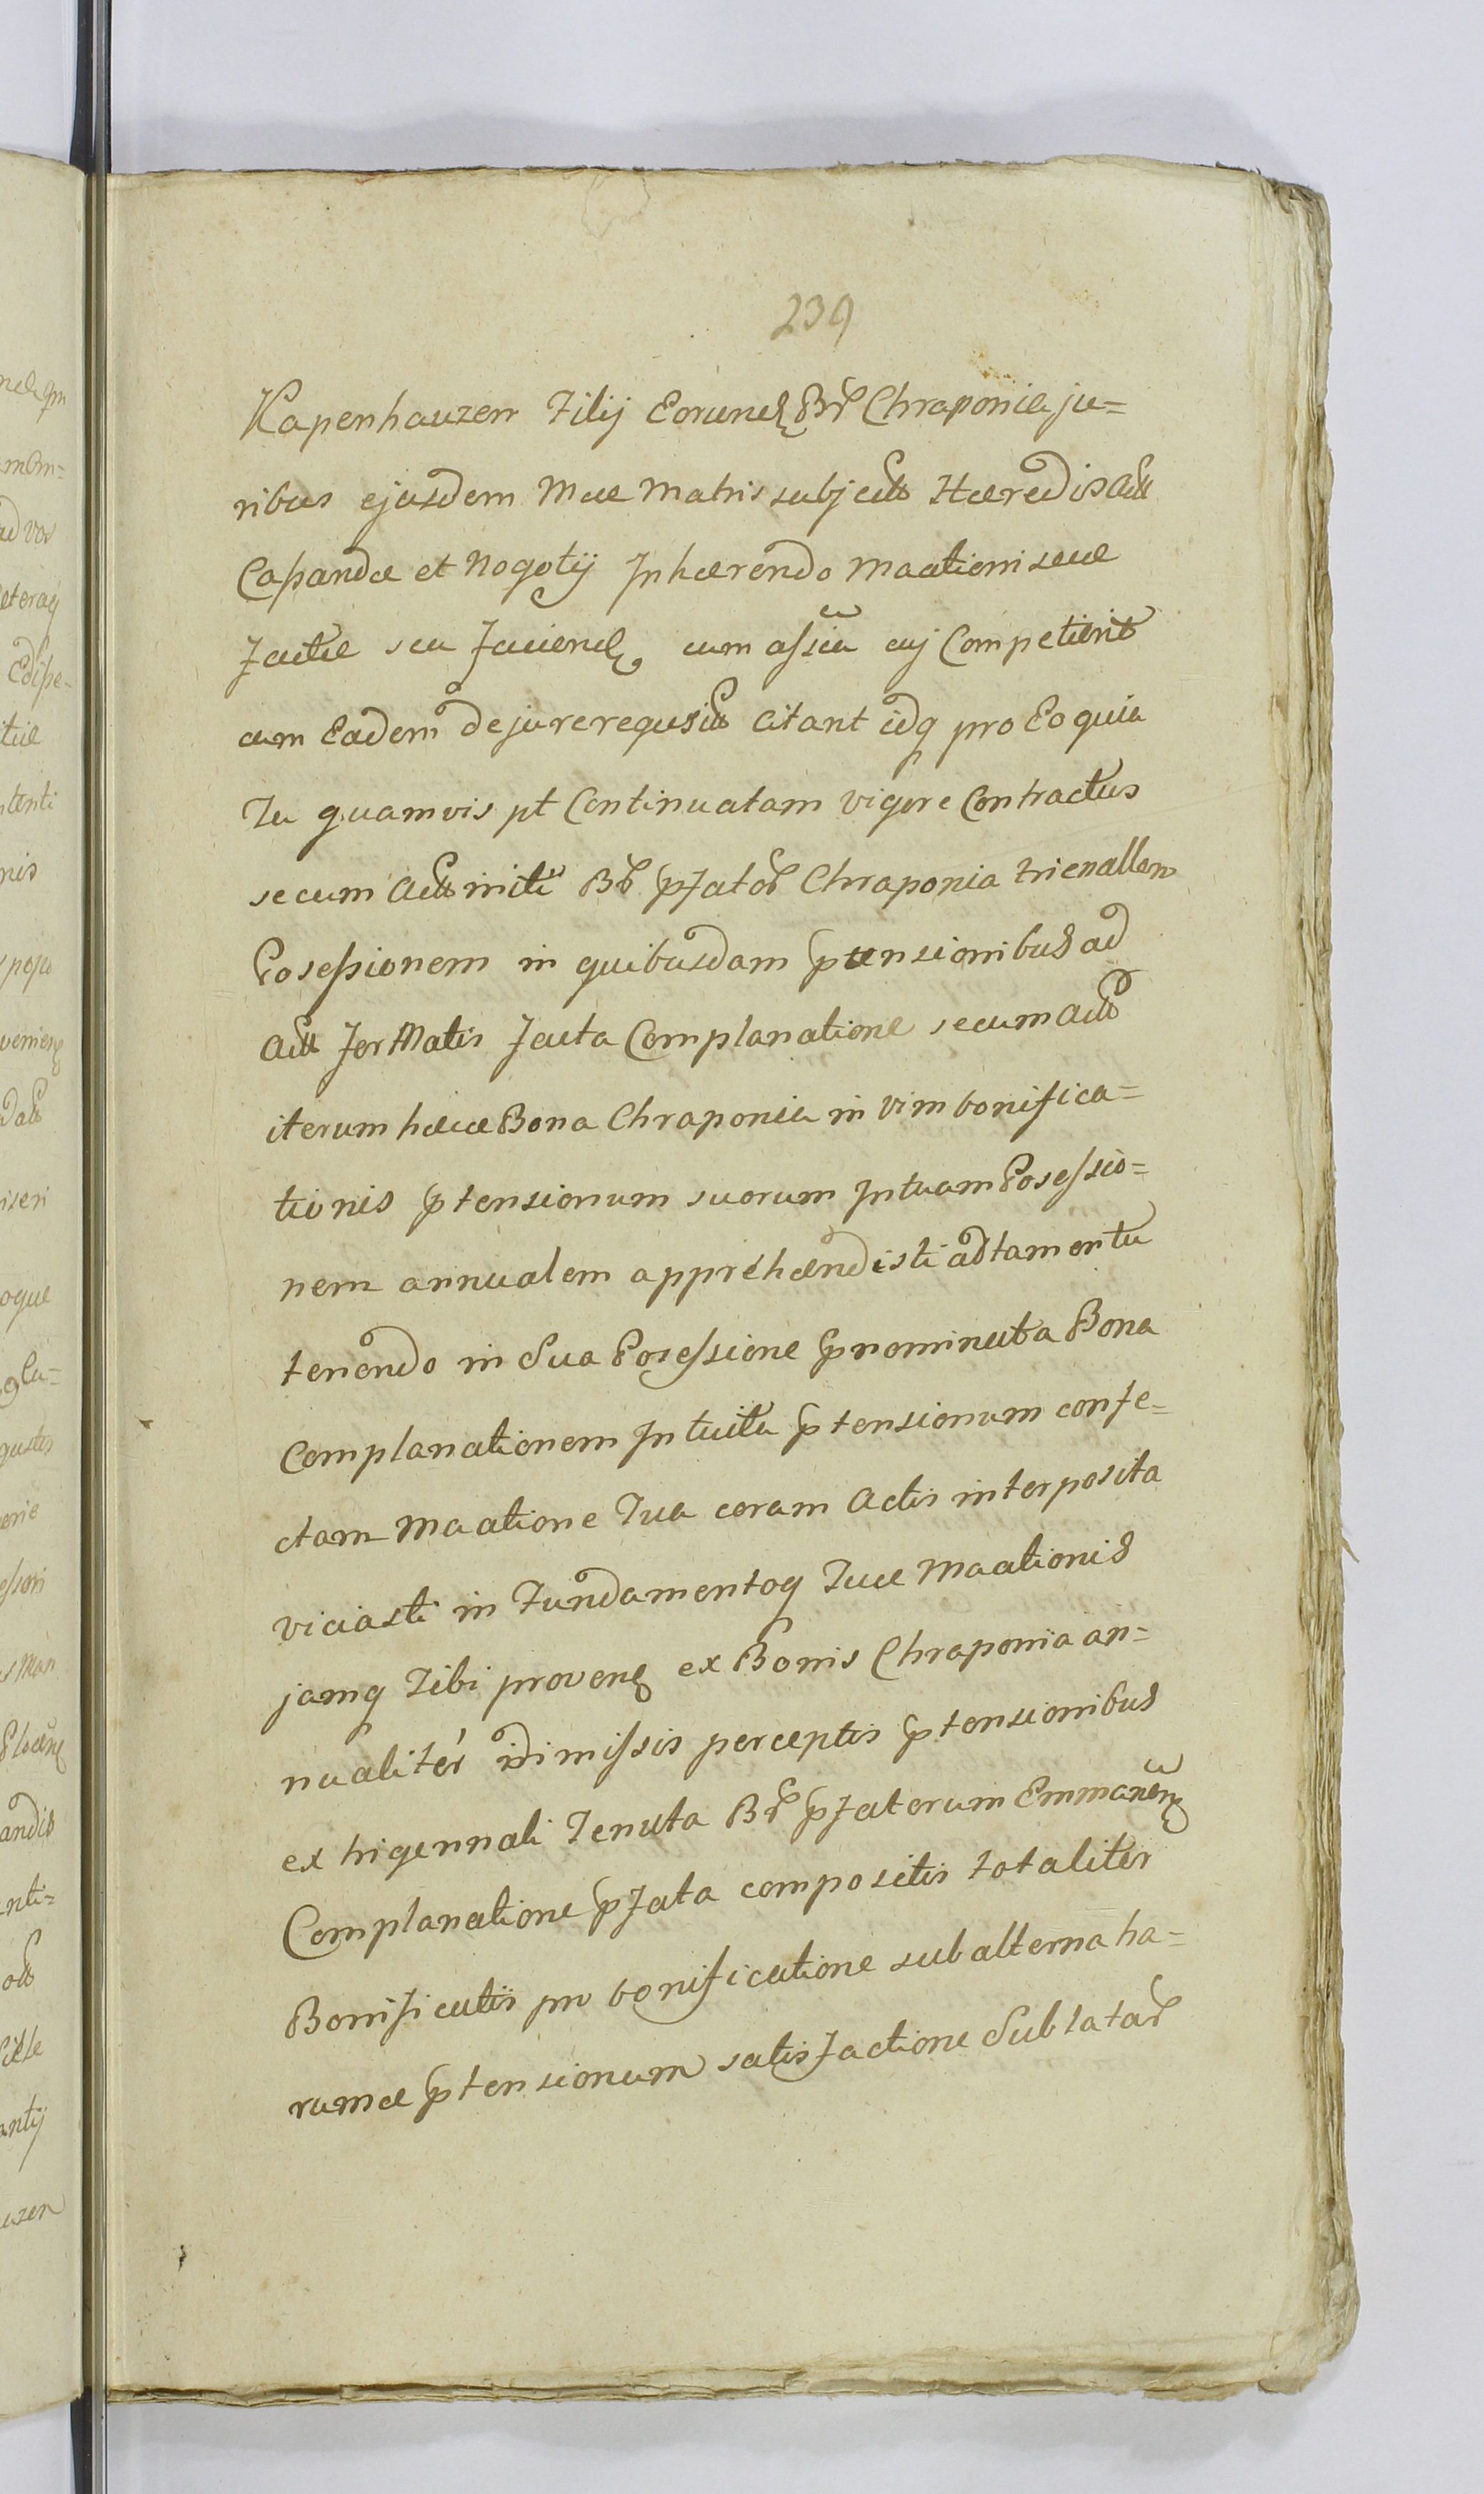 239
Kapenhauzen Filij Eorund Br Chraponia ju=
ribus ejusdem Mae Matris subject Haeredis act
Capandae et Nogotij Inhaerendo Maationi suae
Factae seu Faciend cum assia cuj Competierit
cum Eadem de jure requsit citant idq pro Eo quia
Tu quamvis pt Continuatam vigore Contractus
secum act initi Br pfator Chraponia trienallem
Posessionem in quibusdam ptensionibus ad
act for Matis facta Complanatione secum act
iterum haece Bona Chraponia in vim bonifica=
tionis ptensionum suorum In tuam Posessio=
nem annualem apprehaendisti adtamen tu
tenendo in Sua Posessione pnominata Bona
Complanationem Intuitu ptensionum confe=
ctam Maatione Tua coram Actis interposita
viciasti in Fundamentoq Tuae Maationis
jamq Tibi proven ex Bonis Chraponia an=
nualiter idimissis perceptis ptensionibus
ex trigennali Tenuta Br pfatorum Emmanen
Complanatione pfata compositis totaliter
Bonificatis pro bonificatione subalterna ha=
rumce ptensionum satisfactione Sublatar